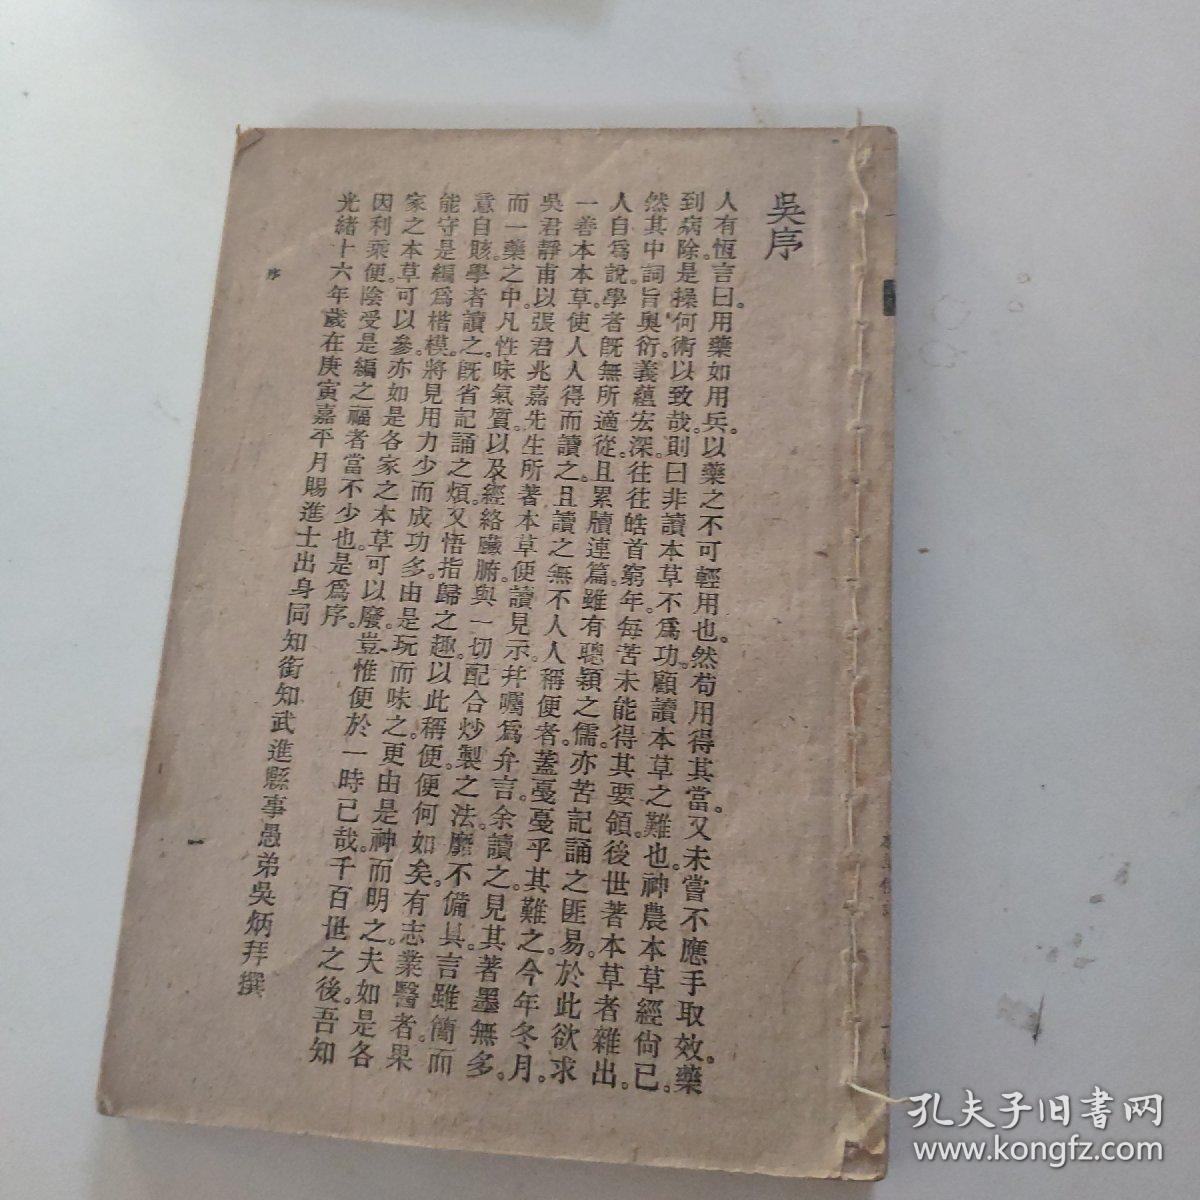 吳序
人有恆言曰。用藥如用兵。以藥之不可輕用也。然苟用得其當。又未嘗不應手取效。藥
到病除。是操何術以致哉。則曰非讀本草不爲功。顧讀本草之難也。神農本草經尙已。
然其中詞旨奧衍。義蘊宏深。往往皓首窮年。每苦未能得其要領。後世著本草者雜出。
人自爲說。學者旣無所適從。且累牘連篇。雖有聰穎之儒。亦苦記誦之匪易。於此欲求
一善本本草。使人人得而讀之。且讀之無不人人稱便者。蓋戞戞乎其難之。今年冬月。
吳君靜甫以張君兆嘉先生所著本草便讀見示。幷囑爲弁言。余讀之。見其著墨無多。
而一藥之中。凡性味氣質。以及經絡臟腑。與一切配合炒製之法。靡不備具。言雖簡而
意自賅。學者讀之。旣省記誦之煩。又悟指歸之趣。以此稱便。便何如矣。有志業醫者。果
能守是編爲楷模。將見用力少而成功多。由是玩而味之。更由是神而明之。夫如是各
家之本草可以參。亦如是各家之本草可以廢。豈惟便於一時已哉。千百世之後。吾知
因利乘便。陰受是編之福者。當不少也。是爲序。
光緒十六年歲在庚寅嘉平月賜進士出身同知銜知武進縣事愚弟吳炳拜撰
序
一
孔夫子旧书网
www.kongfz.com